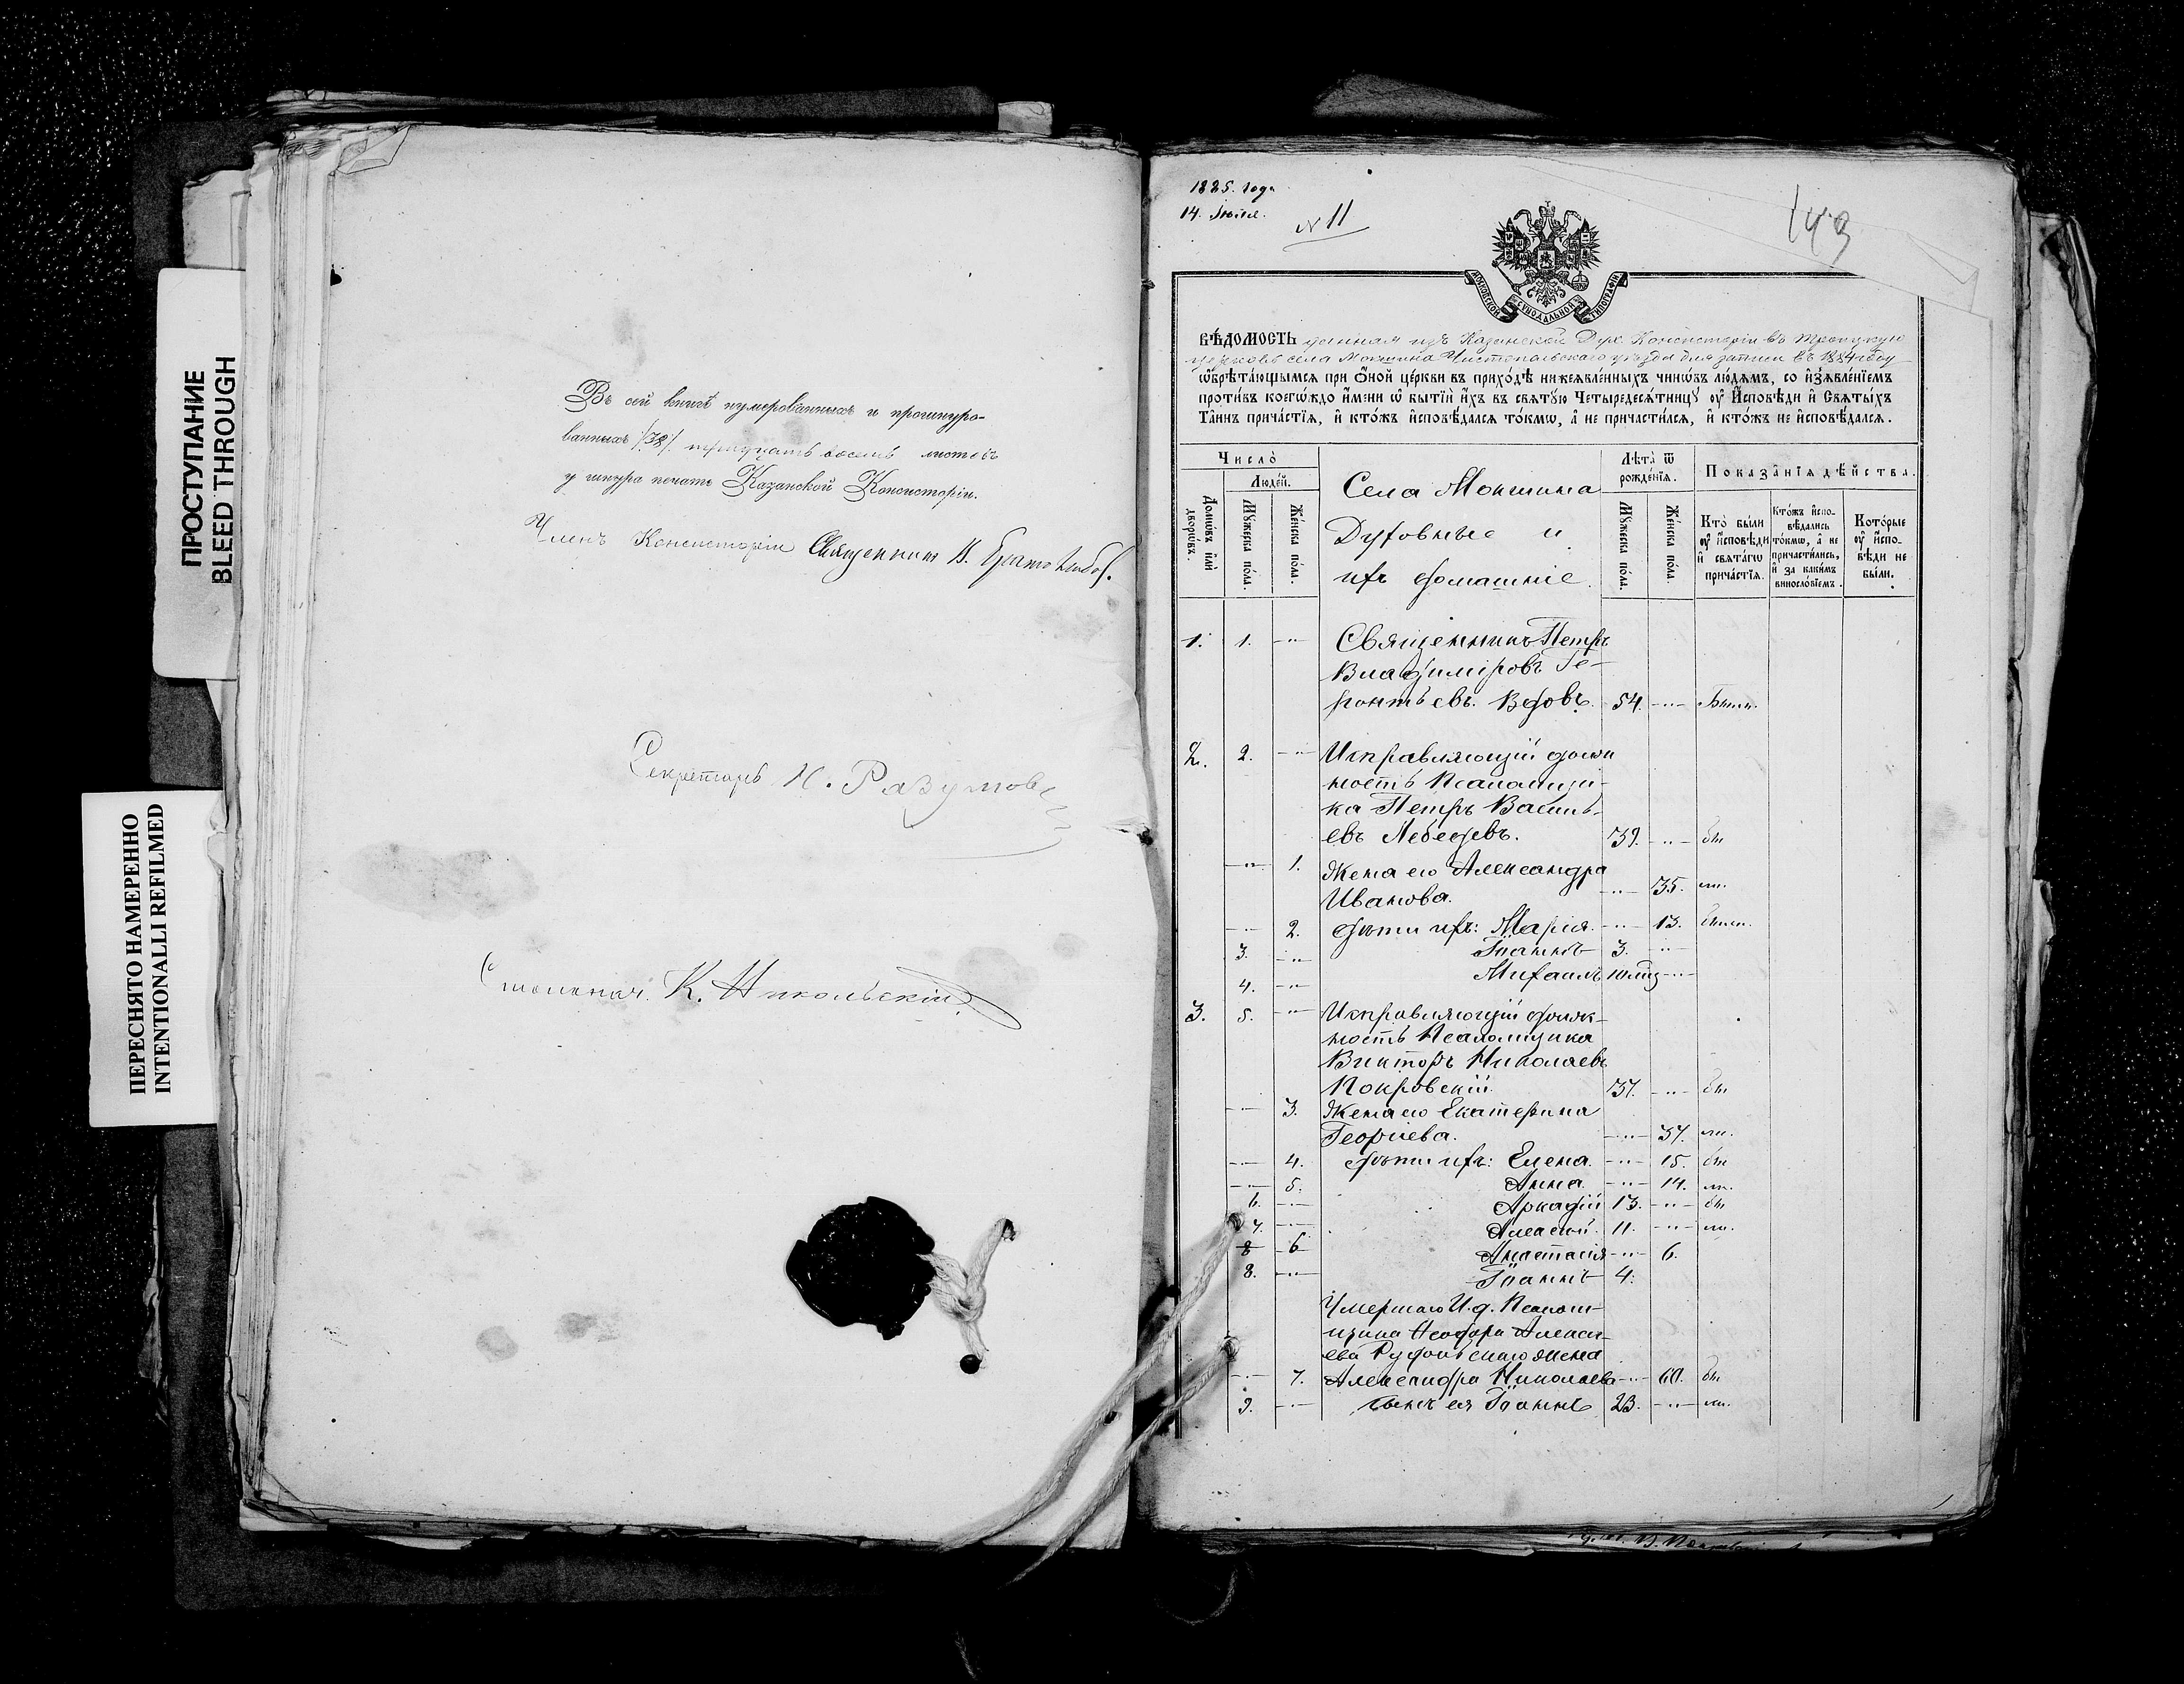 ПРОСТУПАНИЕ
BLEED THROUGH
ПЕРЕСНЯТО НАМЕРЕННО
INTENTIONALLI REFILMED
Въ сей книгѣ нумерованныхъ и прошнуро-
ванныхъ /38/. тридцать восемь листовъ
у шнура печать Казанской Консисторіи.
Членъ Консисторіи Священникъ В.
Секретарь Н. Разумов
Столонач. К. Никольскій
1885. года
14. Іюля.
№ 11
149
МОСКОВСКОЙ СѴНОДАЛЬНОЙ ТИПОГРАФІИ
ВѢДОМОСТЬ данная изъ Казанской Дух. Консисторіи въ Троицкую
церковь села Мокшина Чистопольскаго уѣзда для записи въ 1884 году
ѡбрѣтающымся при Оной церкви въ приходѣ нижеявленныхъ чинѡвъ людямъ, со изъявленіемъ
противъ коегѡждо имени ѡ бытіи ихъ въ святую Четыредесятницу оу Исповѣди и Святыхъ
Таинъ причастія, и ктожъ исповѣдался токмѡ, а не причастился, и ктожъ не исповѣдался.
Число
Людей.
Домѡвъ или дворѡвъ.
Мужеска пола.
Женска пола.
Села Мокшина
Духовные и
ихъ домашніе.
Лѣта ѿ рожденія.
Мужеска пола.
Женска пола.
Показанія дѣйства.
Кто были оу исповѣди и святагѡ причастія.
Ктожъ исповѣдались токмѡ, а не причастились, и за какимъ винословіемъ.
Которые оу исповѣди не были.
1. 1. -"- Священникъ Петръ
Владиміровъ Ге-
ронтьевъ. Вдовъ. 54. -"- Былъ.
2. 2. -"- Исправляющій долж
ность Псаломщи-
ка Петръ Василь-
евъ Лебедевъ. 39. -"- бы
-"- 1. Жена его Александра
Иванова. -"- 35. ли.
-"- 2. Дѣти ихъ: Марія. -"- 13. были.
3. -"- Іоаннъ 3. -"-
4. -"- Михаилъ -"-
3. 5. -"- Исправляющій долж-
ность Псаломщика
Викторъ Николаевъ
Покровскій. 37. -"- бы
-"- 3. Жена его Екатерина
Георгіева. -"- 37. ли.
-"- 4. Дѣти ихъ: Елена. -"- 15. бы
-"- 5. Анна. -"- 14. ли.
6. -"- Аркадій 13. -"- бы
7. -"- Алексій. 11. -"- ли.
8 6 Анастасія -"- 6.
8. -"- Іоаннъ 4.
Умершаго И.д. Псалом-
щика Ѳеодора Алексѣ-
ева Рудольскаго жена
-"- 7. Александра Николаева -"- 60. бы
9. -"- сынъ ея Іоаннъ 23. -"- ли.